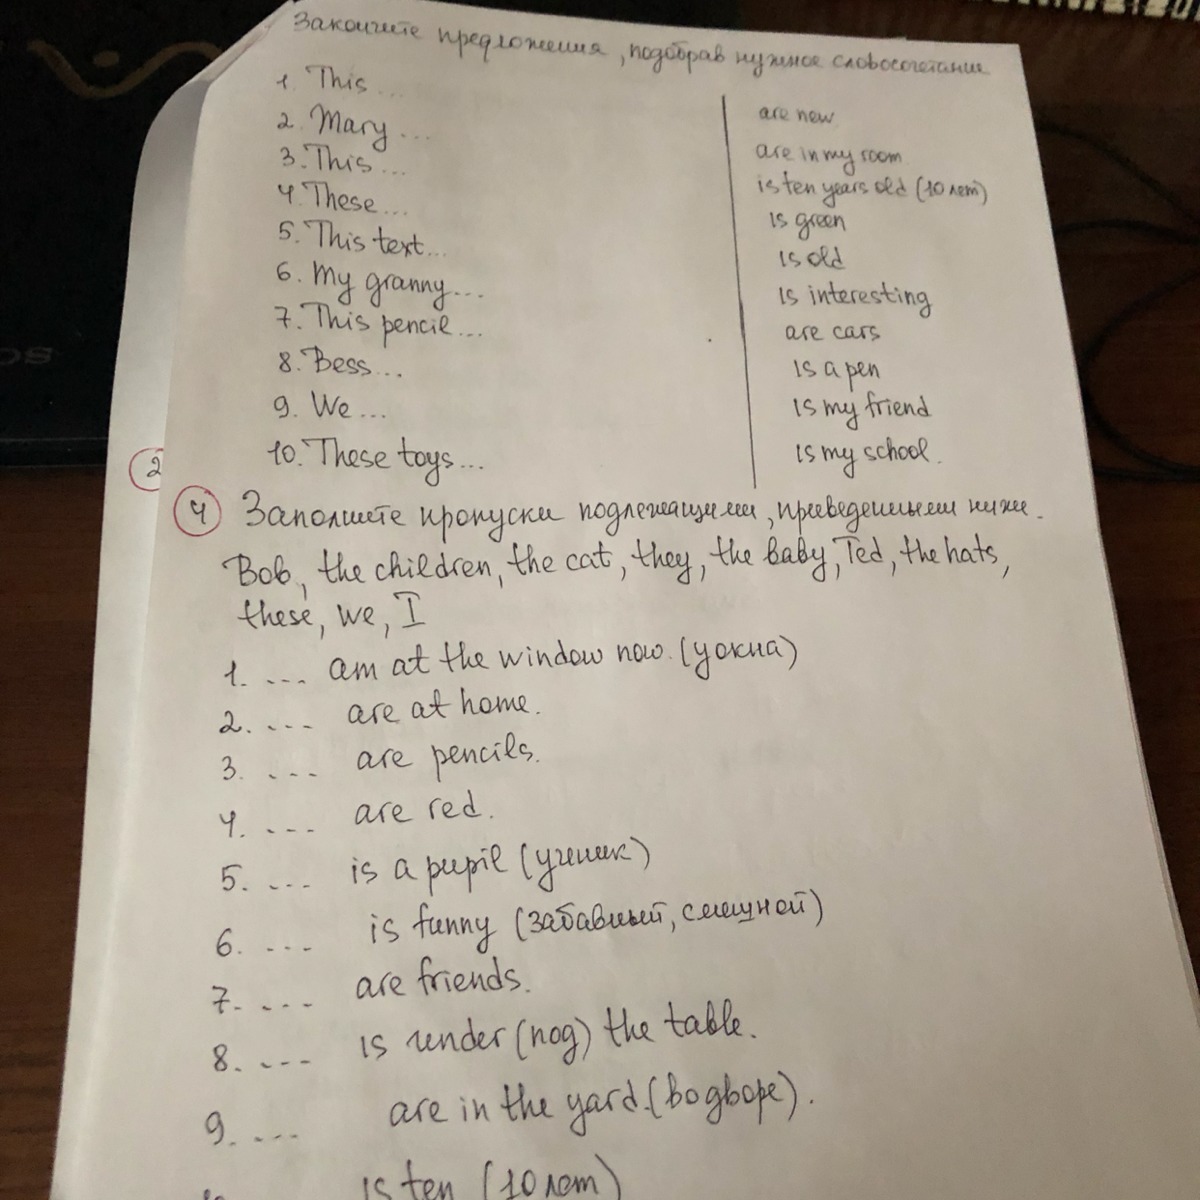 Закончите предложения, подобрав нужное словосочетание
1. This ...
2. Mary ...
3. This ...
4. These ...
5. This text ...
6. My granny ...
7. This pencil ...
8. Bess ...
9. We ...
10. These toys ...
are new
are in my room
is ten years old (10 лет)
is green
is old
is interesting
are cars
is a pen
is my friend
is my school.
2
4 Заполните пропуски подлежащими, приведенными ниже.
Bob, the children, the cat, they, the baby, Ted, the hats,
these, we, I
1. ... am at the window now. (у окна)
2. ... are at home.
3. ... are pencils.
4. ... are red.
5. ... is a pupil (ученик)
6. ... is funny (забавный, смешной)
7. ... are friends.
8. ... is under (под) the table.
9. ... are in the yard. (во дворе).
is ten (10 лет)